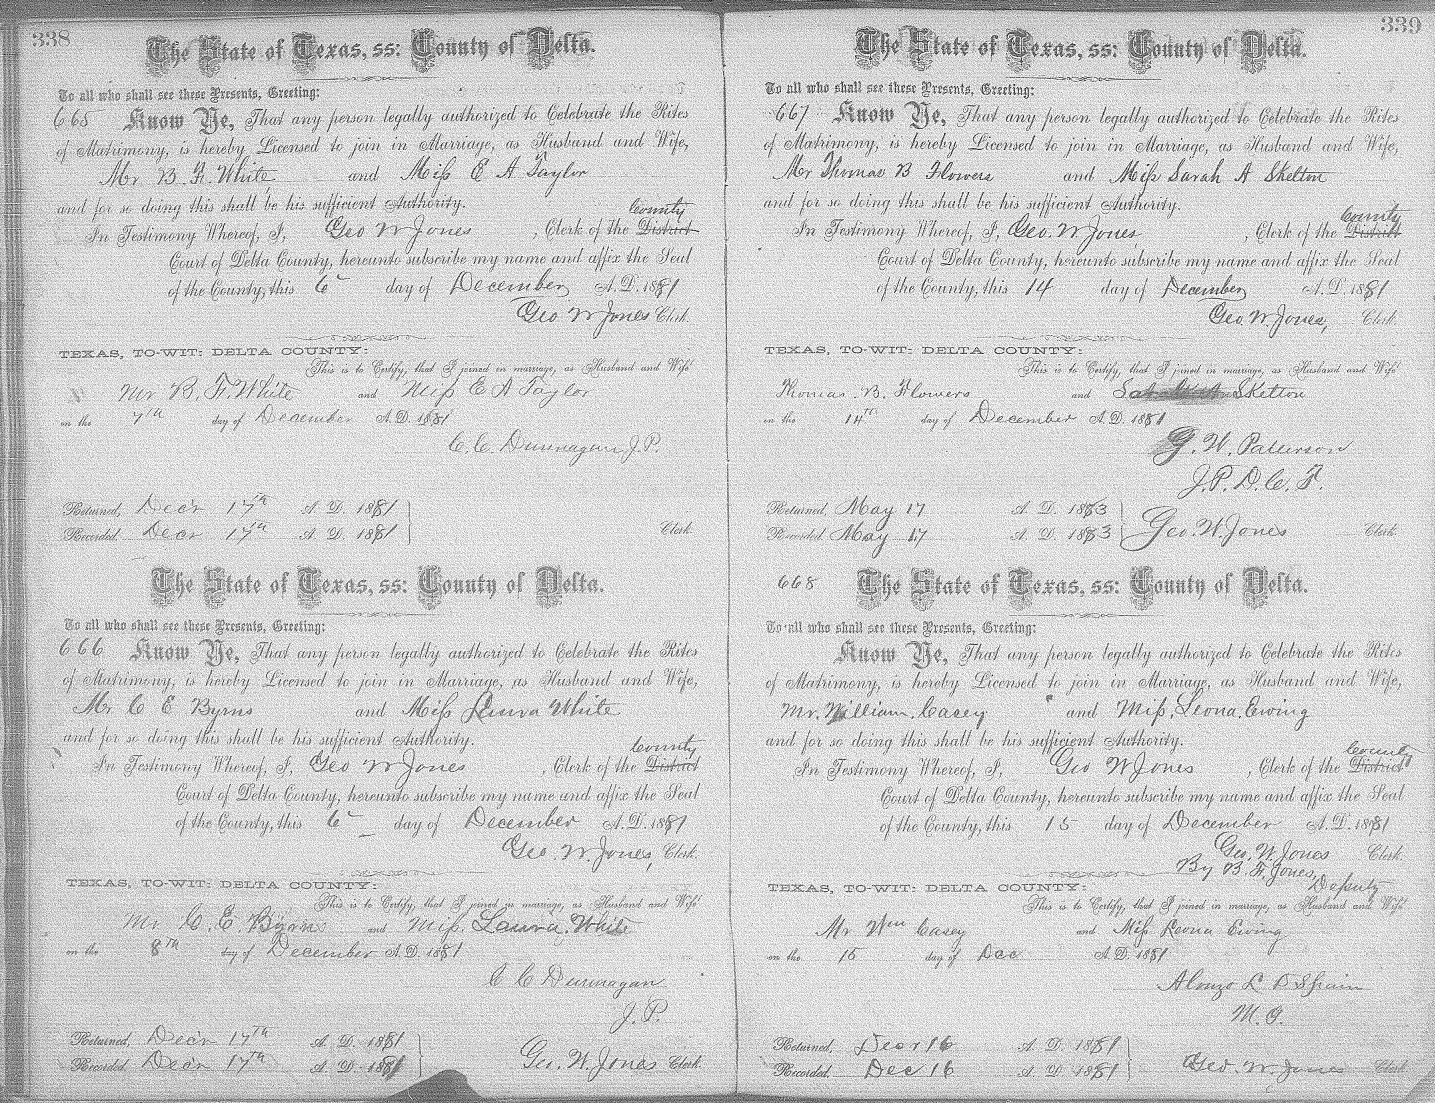 338
The State of Texas, ss: County of Delta.
To all who shall see these Presents, Greeting:
665 Know Ye, That any person legally authorized to Celebrate the Rites
of Matrimony, is hereby Licensed to join in Marriage, as Husband and Wife,
Mr B F White and Miss E A Taylor
and for so doing this shall be his sufficient Authority.
County
In Testimony Whereof, I, Geo W Jones, Clerk of the District
Court of Delta County, hereunto subscribe my name and affix the Seal
of the County, this 6 day of December A.D. 1881
Geo W Jones Clerk.
TEXAS, TO-WIT: DELTA COUNTY:
This is to Certify, that I joined in marriage, as Husband and Wife
Mr B. F. White and Miss E A Taylor
on the 7th day of December A.D. 1881
C. C. Dunnagan J.P.
Returned, Decr 17th A. D. 1881
Recorded Decr 17th A. D. 1881 Clerk
The State of Texas, ss: County of Delta.
To all who shall see these Presents, Greeting:
666 Know Ye, That any person legally authorized to Celebrate the Rites
of Matrimony, is hereby Licensed to join in Marriage, as Husband and Wife,
Mr C E Byrns and Miss Laura White
and for so doing this shall be his sufficient Authority.
County
In Testimony Whereof, I, Geo W Jones, Clerk of the District
Court of Delta County, hereunto subscribe my name and affix the Seal
of the County, this 6 day of December A.D. 1881
Geo. W. Jones, Clerk.
TEXAS, TO-WIT: DELTA COUNTY:
This is to Certify, that I joined in marriage, as Husband and Wife
Mr C. E. Byrns and Miss, Laura. White
on the 8th day of December A.D. 1881
C C Dunnagan
J.P.
Returned, Decr 17th A. D. 1881
Recorded. Decr 17th A. D. 1881 Geo. W. Jones Clerk.
339
The State of Texas, ss: County of Delta.
To all who shall see these Presents, Greeting:
667 Know Ye, That any person legally authorized to Celebrate the Rites
of Matrimony, is hereby Licensed to join in Marriage, as Husband and Wife,
Mr Thomas B Flowers and Miss Sarah A Skelton
and for so doing this shall be his sufficient Authority.
County
In Testimony Whereof, I, Geo. W. Jones, Clerk of the District
Court of Delta County, hereunto subscribe my name and affix the Seal
of the County, this 14 day of December A.D. 1881
Geo. W. Jones, Clerk.
TEXAS, TO-WIT: DELTA COUNTY:
This is to Certify, that I joined in marriage, as Husband and Wife
Thomas. B. Flowers and Skelton
on the 14th day of December A.D. 1881
G. W. Patterson
J.P. D. C. T.
Returned, May 17 A. D. 1883
Recorded. May 17 A. D. 1883 Geo. W. Jones Clerk
668 The State of Texas, ss: County of Delta.
To all who shall see these Presents, Greeting:
Know Ye, That any person legally authorized to Celebrate the Rites
of Matrimony, is hereby Licensed to join in Marriage, as Husband and Wife,
Mr. William. Casey and Miss, Leona. Ewing
and for so doing this shall be his sufficient Authority.
County
In Testimony Whereof, I, Geo W Jones, Clerk of the District
Court of Delta County, hereunto subscribe my name and affix the Seal
of the County, this 15 day of December A.D. 1881
Geo. W. Jones Clerk.
By B. F. Jones,
Deputy
TEXAS, TO-WIT: DELTA COUNTY:
This is to Certify, that I joined in marriage, as Husband and Wife
Mr Wm Casey and Miss Leona Ewing
on the 15 day of Dec A.D. 1881
Alonzo L D Spain
M. G.
Returned, Decr 16 A. D. 1881
Recorded. Dec 16 A. D. 1881 Geo. W. Jones Clerk